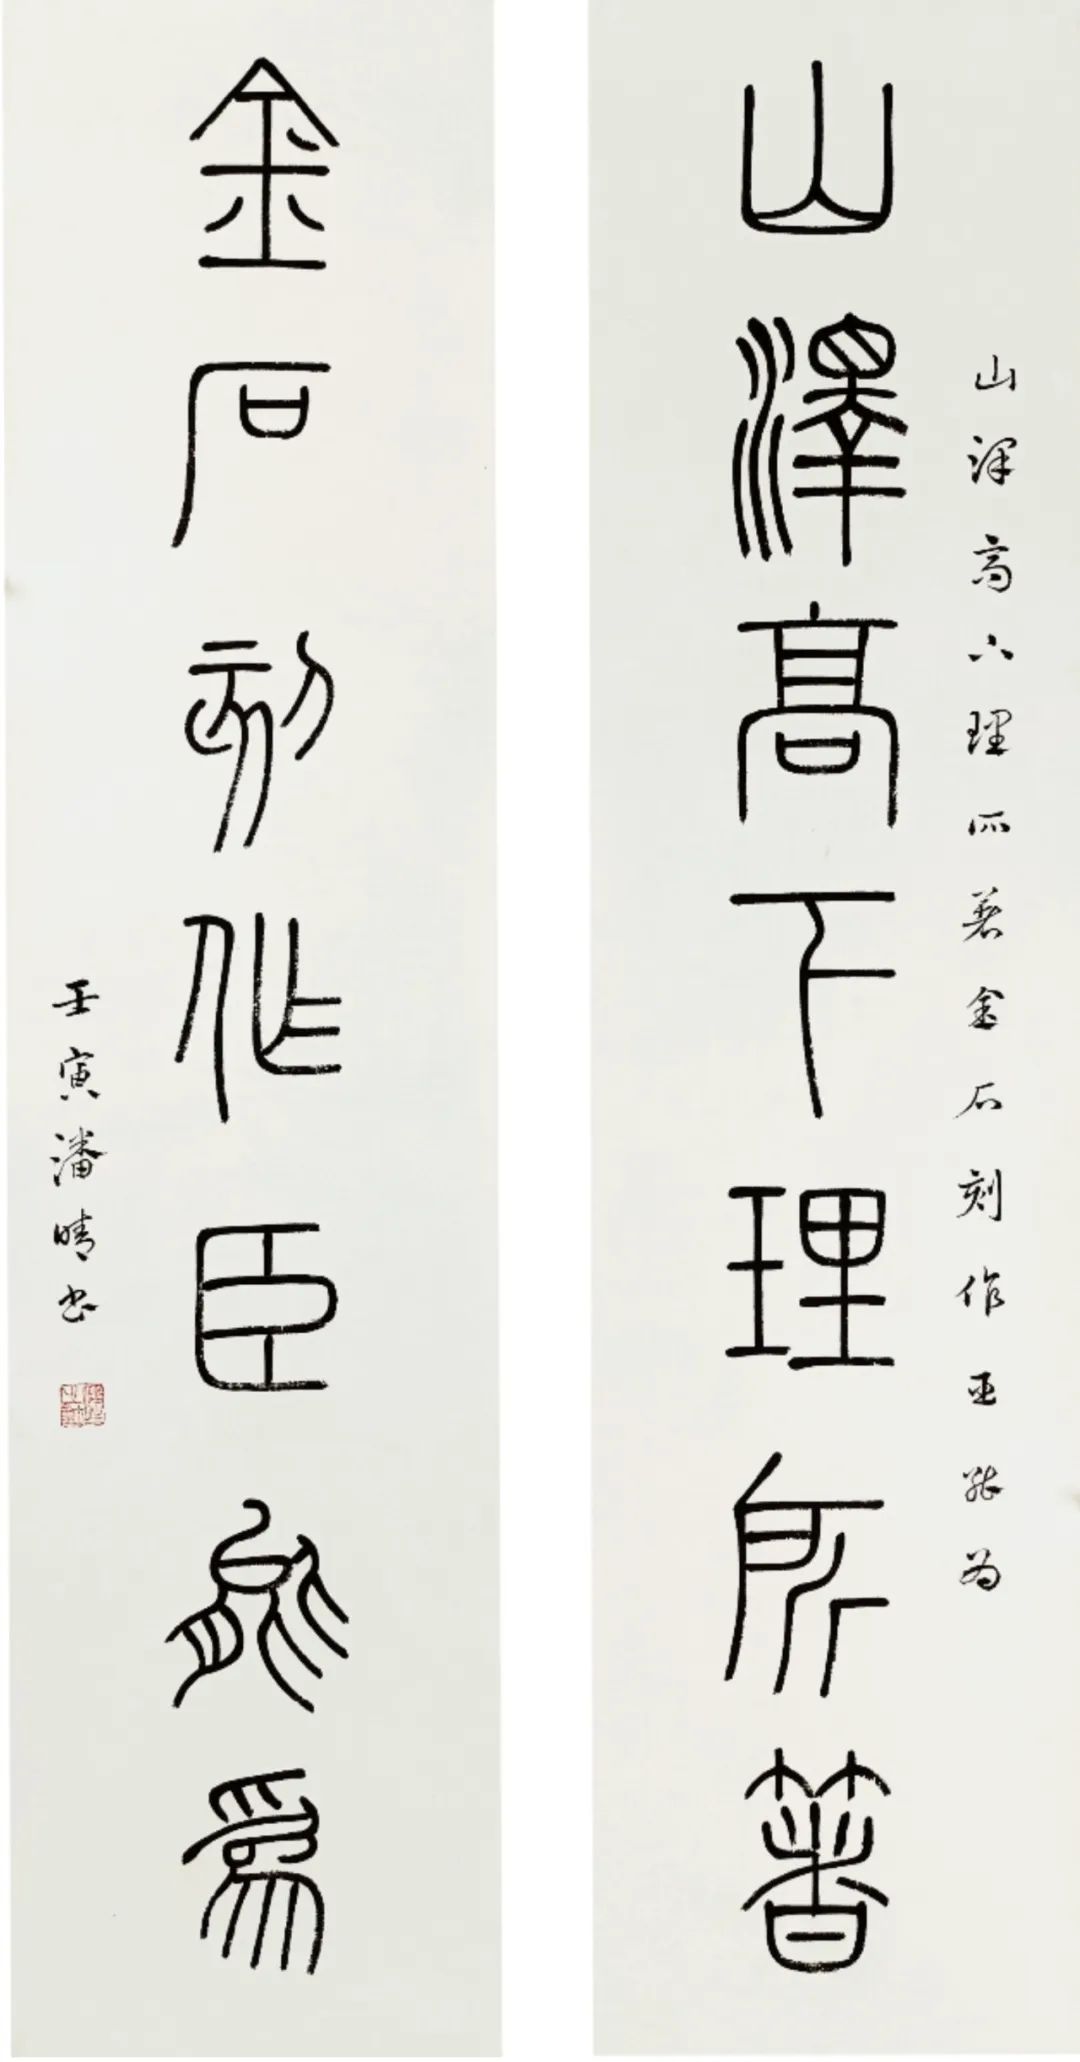 山泽高下理所著金石刻作臣能为
山澤高下理所箸
金石刻作臣能爲
壬寅潘晴书